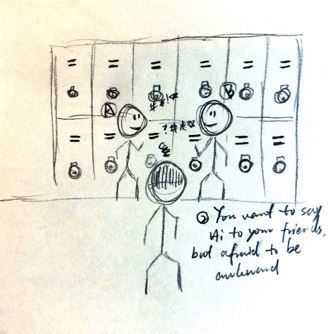 A
B
② You want to say
Hi to your friends,
but afraid to be
awkward